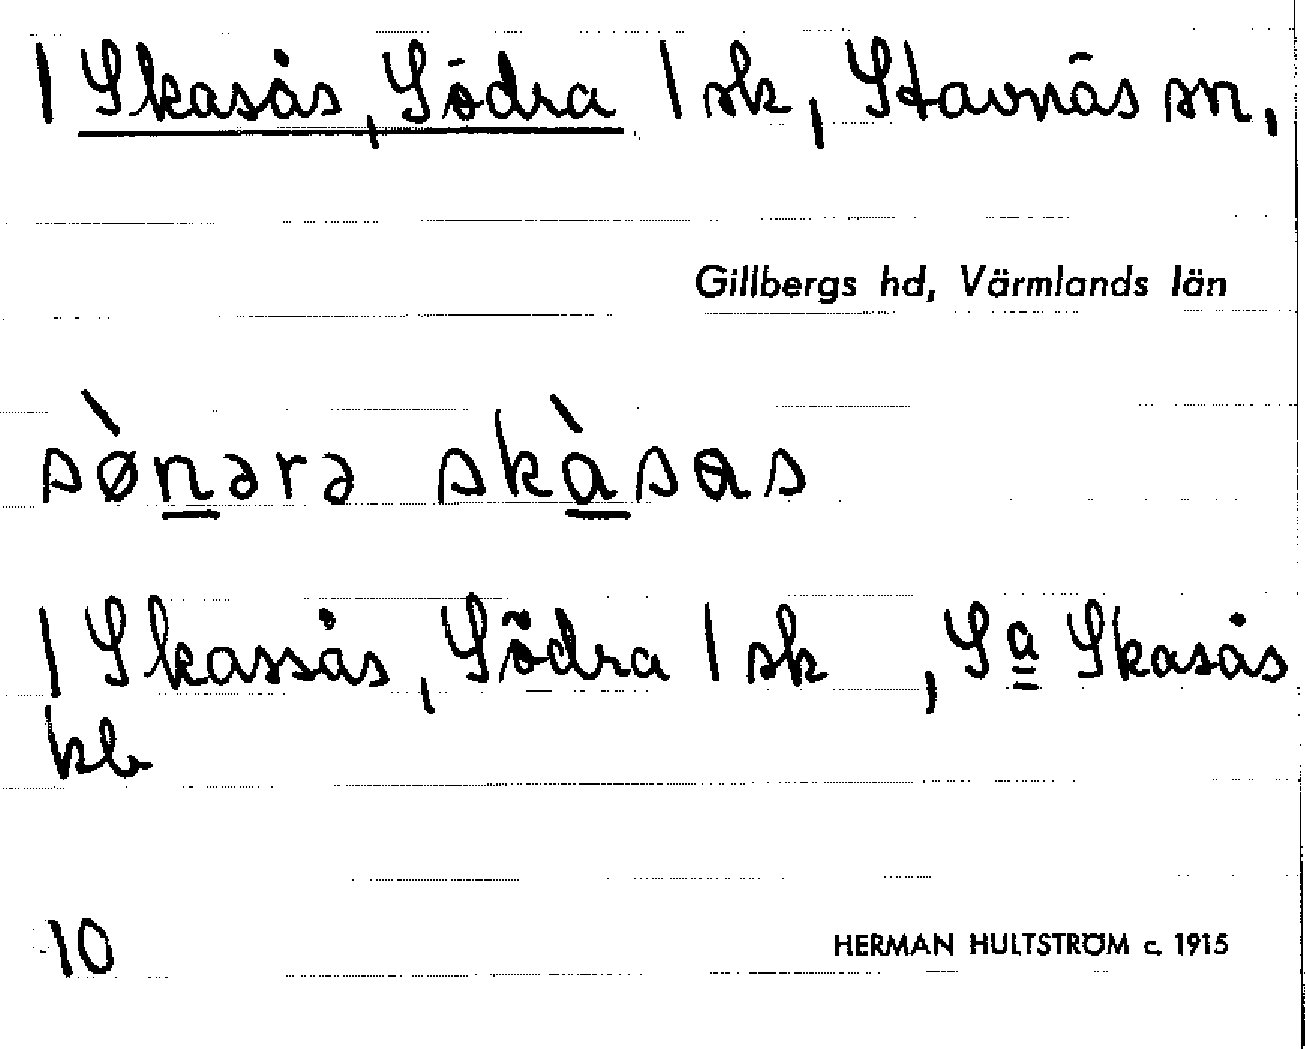 | Skasås, Södra | sk, Stavnäs sn,
Gillbergs hd, Värmlands län
sø̀nərə skàsas
| Skassås, Södra | sk , Sa Skasås
kb
10
HERMAN HULTSTRÖM c. 1915